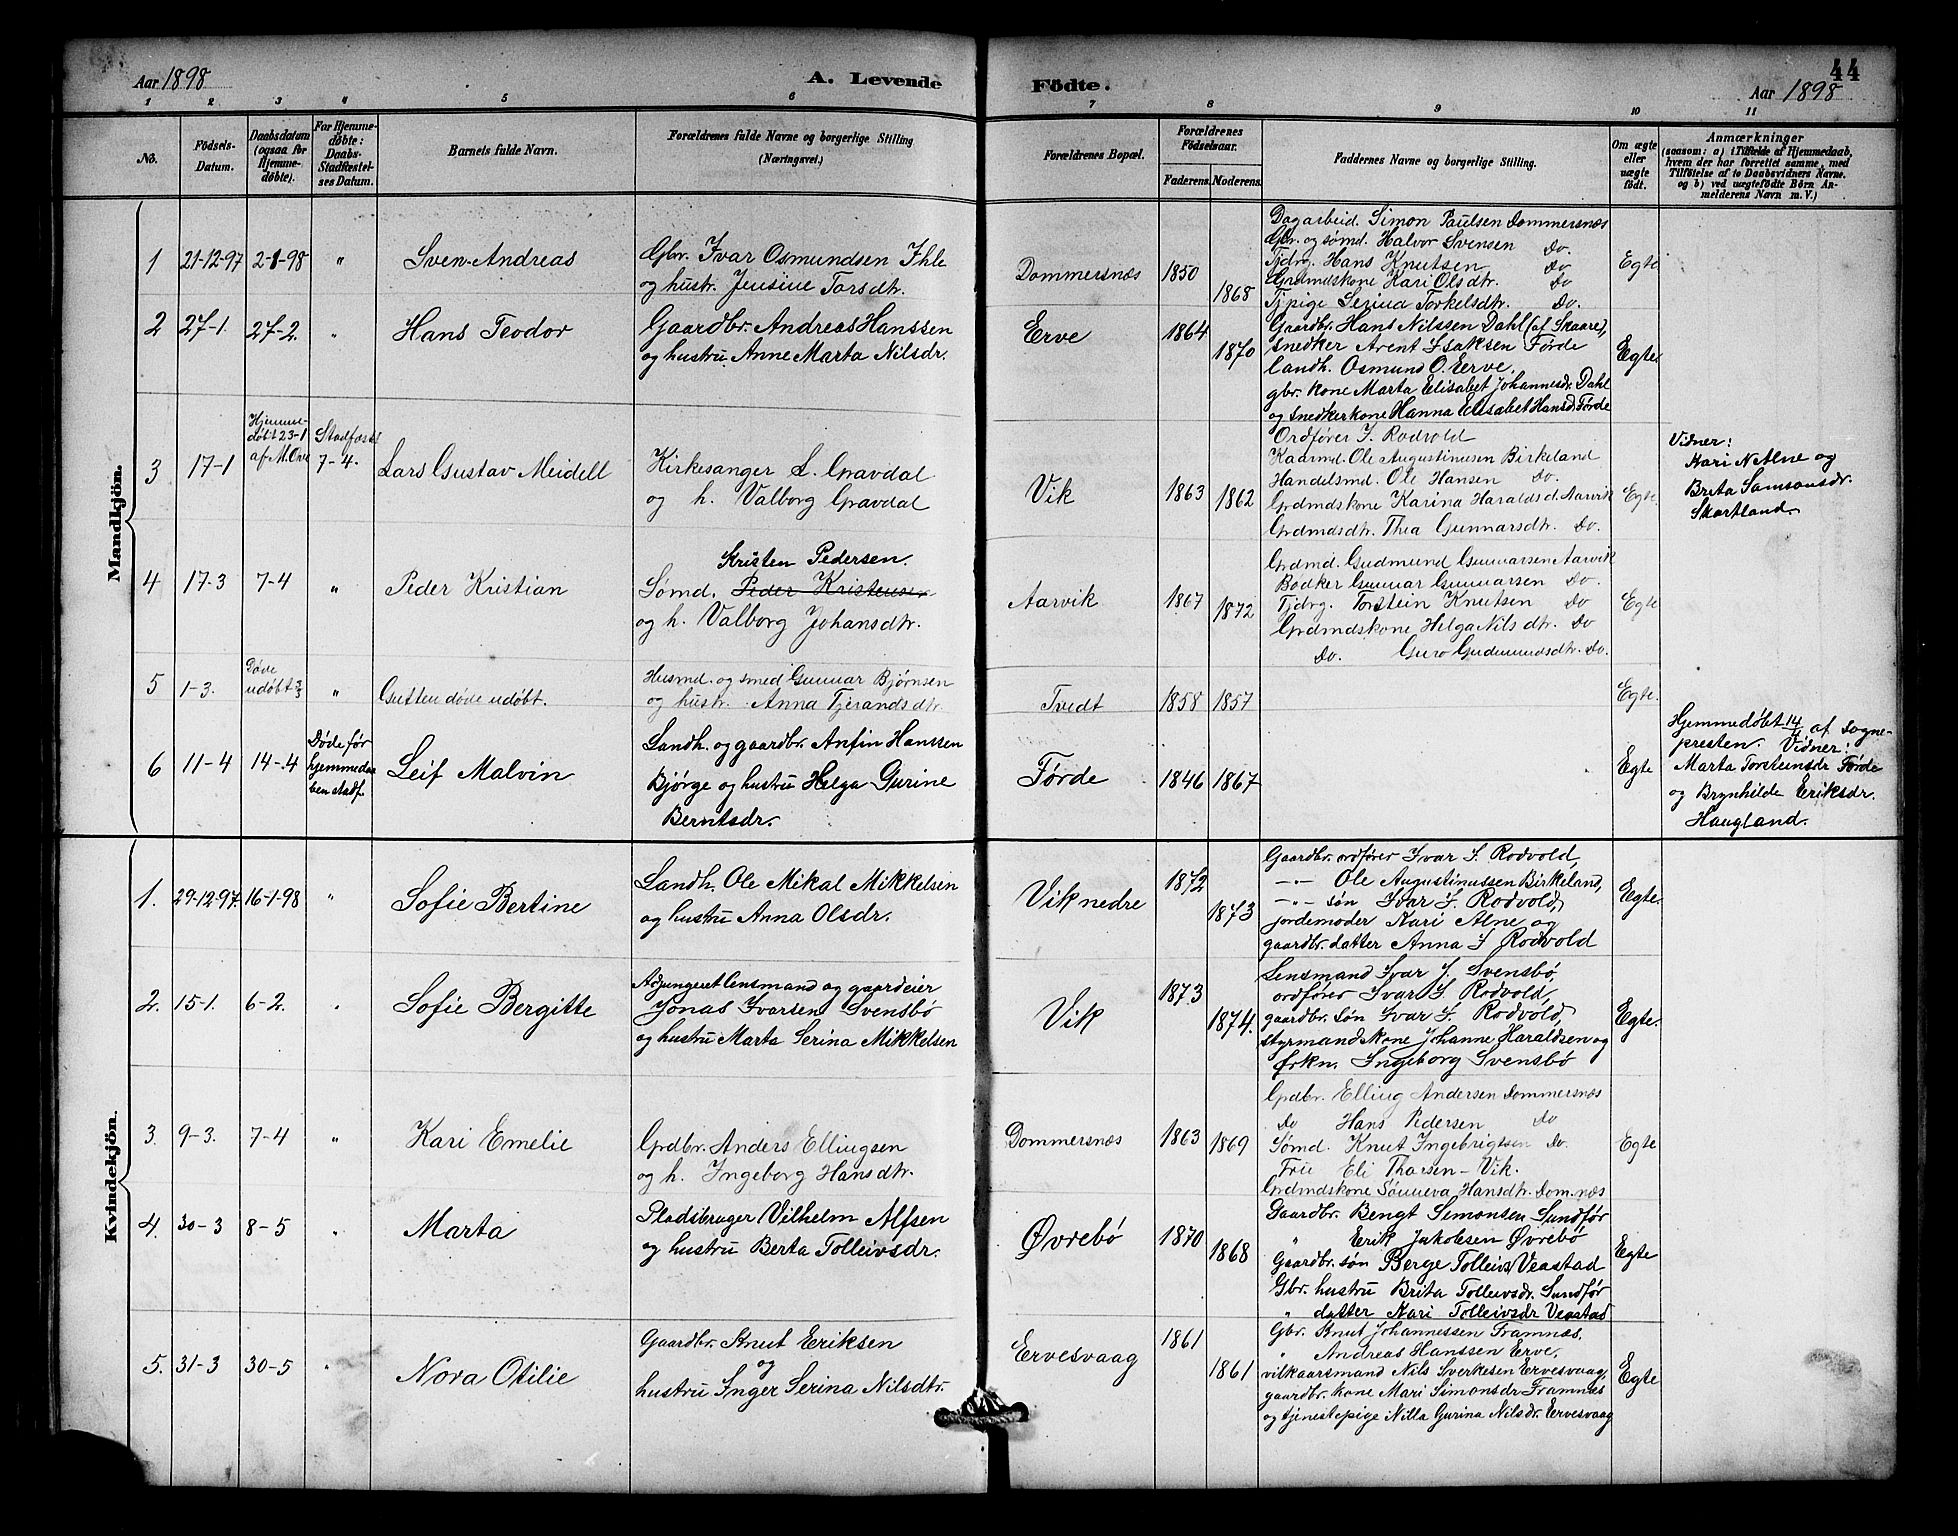 44
Aar 1898
A. Levende
Födte.
Aar 1898
1 2 3 4 5 6 7 8 9 10 11
No.
Födsels-
Datum.
Daabsdatum
(ogsaa for
Hjemme-
døbte).
For Hjemme-
døbte:
Daabs-
Stadfæstel-
ses Datum.
Barnets fulde Navn.
Forældrenes fulde Navne og borgerlige Stilling
(Næringsvei.)
Forældrenes Bopæl.
Forældrenes
Födselsaar.
Faderens. Moderens.
Faddernes Navne og borgerlige Stilling.
Om ægte
eller
uægte
födt.
Anmærkninger
(saasom: a) i Tilfælde af Hjemmedaab,
hvem der har forrettet samme, med
Tilföielse af to Daabsvidners Navne.
og b) ved uægtefödte Börn An-
melderens Navn m. V.)
Mandkjön.
1 21-12-97 2-1-98 " Sven Andreas
Gbr. Ivar Osmundsen Ihle
og hustr. Jensine Torsdtr.
Dommersnæs 1850 1868
Dagarbeid. Simon Paulsen Dommersnæs
Gbr. og sømd. Halvor Svensen Do.
Tjdrg. Hans Knutsen Do
Grdmdskone Kari Olsdtr. Do
Tjpige Serina Torkelsdtr. Do.
Egte
2 27-1. 27-2. " Hans Teodor
Gaardbr. Andreas Hanssen
og hustru Anne Marta Nilsdr.
Erve 1864 1870
Gaardbr. Hans Nilssen Dahl (af Skaare),
snedker Arent Isaksen Førde
landh. Osmund O. Erve,
gbr. kone Marta Elisabet Johannesdr. Dahl
og snedkerkone Hanna Elisabet Hansd. Førde
Egte.
3 17-1
Hjemme-
døbt 23-1
af M. Ove
Stadfæst
7-4.
Lars Gustav Meidell
Kirkesanger L. Gravdal
og h. Valborg Gravdal
Vik 1863 1862
Ordfører I. Rodvold
Kaarmd. Ole Augustinusen Birkeland
Handelsmd. Ole Hansen Do.
Grdmdskone Karina Haraldsd. Aarvik
Grdmdsdtr. Thea Gunnarsdtr. Do.
Egte
Vidner:
Kari N. Alne og
Brita Samsonsdr.
Skartland.
4 17-3 7-4 " Peder Kristian
Kristen Pedersen.
Sømd. Peder Kristensen
og h. Valborg Johansdtr.
Aarvik 1867 1872
Grdmd. Gudmund Gunnarsen Aarvik
Bødker Gunnar Gunnarsen Do.
Tjdrg. Torstein Knutsen Do
Grdmdskone Helga Nilsdtr. Do
Do. Guro Gudmundsdtr. Do.
Egte
5 1-3.
Døde
udøbt 3/3
" Gutten døde udøbt.
Husmd. og smed Gunnar Bjørnsen
og hustr. Anna Tjerandsdtr.
Tvedt 1858 1857
Egte.
6 11-4 14-4
Døde før
hjemmedaa
ben stadf.
Leif Malvin
Landh. og gaardbr. Anfin Hanssen
Bjørge og hustru Helga Gurine
Berntsdr.
Førde 1846 1867
Egte
Hjemmedøbt 14/4 af Sogne-
presten. Vidner:
Marta Torsteinsdr Førde
og Brynhilde Eriksdr.
Haugland.
Kvindekjön.
1. 29-12-97. 16-1-98 " Sofie Bertine
Landh. Ole Mikal Mikkelsen
og hustru Anna Olsdr.
Vik nedre 1872 1873
Gaardbr. ordfører Ivar I. Rodvold,
—"— Ole Augustinussen Birkeland,
—"— søn Ivar I. Rodvold,
jordemoder Kari Alne og
gaardbr. datter Anna I Rodvold
Egte.
2. 15-1. 6-2. " Sofie Bergitte
Adjungeret lensmand og gaardeier
Jonas Ivarsen Svensbø
og hustru Marta Serina Mikkelsen
Vik 1873 1874.
Lensmand Ivar J. Svensbø,
ordfører Ivar I. Rodvold,
gaardbr. søn Ivar I. Rodvold,
styrmandskone Johanne Haraldsen og
frkn. Ingeborg Svensbø
Egte.
3. 9-3. 7-4 " Kari Emelie
Grdbr. Anders Ellingsen
og h. Ingeborg Hansdtr.
Dommersnæs 1863 1869
Grdbr. Elling Andersen Dommersnæs
Do Hans Pedersen Do
Sømd. Knut Ingebrigtsen Do.
Frue Eli Thorsen - Vik.
Grdmdskone Sønneva Hansdtr. Dom.næs
Egte
4. 30-3 8-5 " Marta
Pladsbruger Vilhelm Alfsen
og hustru Berta Tolleivsdr.
Øvrebø 1870 1868
Gaardbr. Bengt Simonsen Sundfør
" Erik Jakobsen Øvrebø
Gaardbr. søn Berge Tolleivs. Veastad
Gbr. hustru Brita Tolleivsdr. Sundfør
" datter Kari Tolleivsdr Veastad
Egte
5. 31-3 30-5 " Nora Otilie
Gaardbr. Knut Eriksen
og
hustru Inger Serina Nilsdtr.
Ervesvaag 1861 1861
Gbr. Knut Johannessen Framnæs,
" Andreas Hanssen Erve,
vilkaarsmand Nils Sverkesen Ervesvaag,
gaardbr. kone Mari Simonsdr Framnæs
og tjenestepige Nilla Gurina Nilsdr. Ervesvaag
Egte